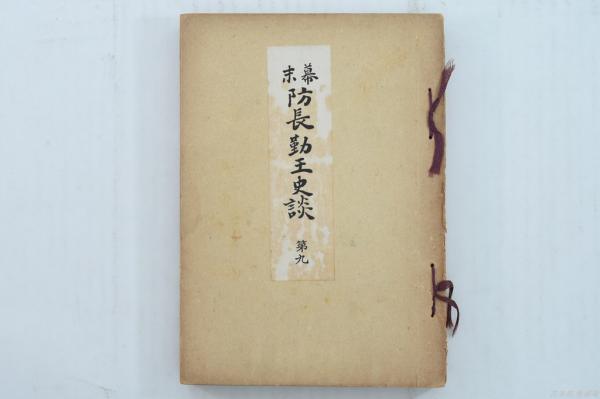 幕末
防長勤王史談
第九